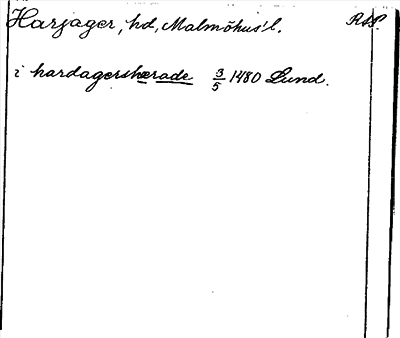 Harjager, hd, Malmöhus' l.
i hardagershærade 3/5 1480 Lund.